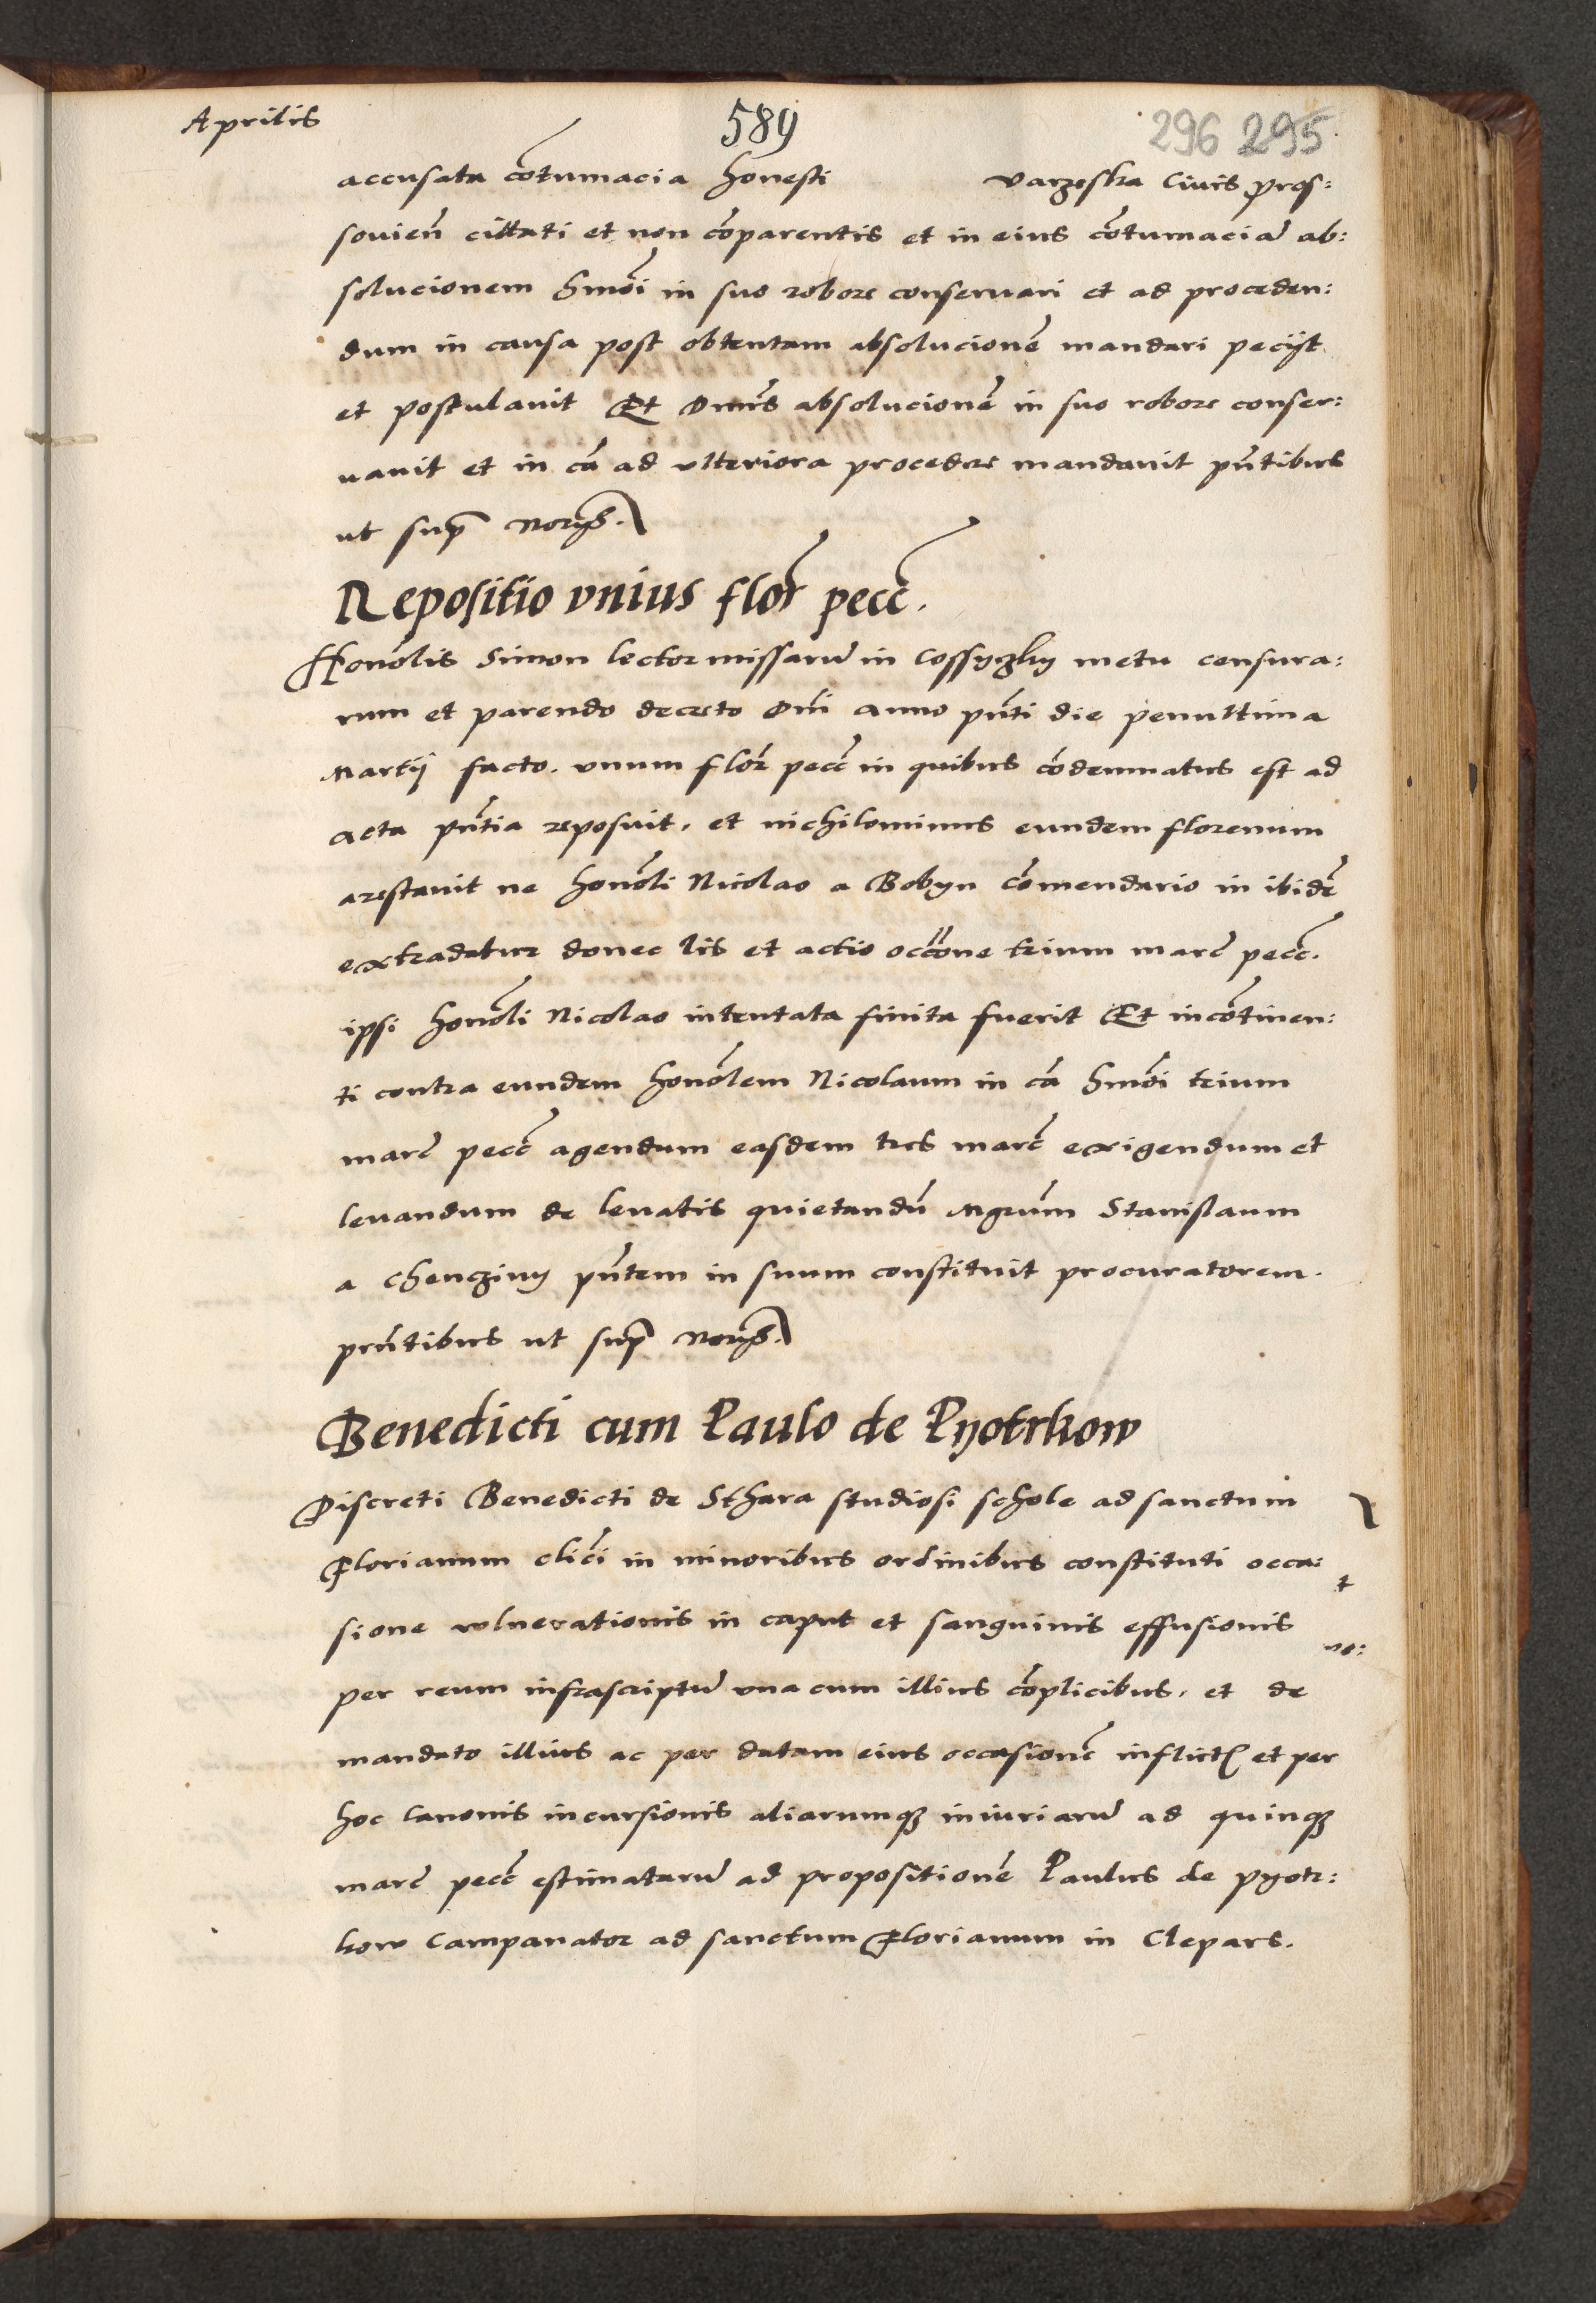 Aprilis
589
296 295
accusata cōtumacia honesti varzeska Civis pros:
souieñ cittati et non cōparentis et in eius cōtumaciā ab:
solucionem hmōi in suo robore conseruari et ad proceden:
dum in causa post obtentam absolucionē mandari peciit
et postulauit Et Dn̄us absolucionē in suo robore conser:
uauit et in cā ad vlteriora procedere mandauit pn̄tibus
ut sup̄
Repositio vnius flor̄ pecc̄.
Honōlis Simon lector missarū in Cossyczky metu censura:
rum et parendo decreto Dn̄i anno pn̄ti die penultima
Martij facto. vnum flor̄ pecc̄ in quibus cōdemnatus est ad
acta pn̄tia reposuit. et nichilominus eundem florenum
arestauit ne honōli Nicolao a Bobyn cōmendario in ibidē
extradatur donec lis et actio occōne trium marc̄ pecc̄.
ipsi honōli Nicolao intentata finita fuerit Et incōtinen:
ti contra eundem honōlem Nicolaum in cā hmōi trium
marc̄ pecc̄ agendum easdem tres marc̄ exigendum et
leuandum de leuatis quietandū Mgrūm Stanislaum
a Chencziny pn̄tem in suum constituit procuratorem.
prn̄tibus ut sup̄
Benedicti cum Paulo de Pyotrkow
Discreti Benedicti de Sthara studiosi schole ad sanctum
Florianum clici̅ in minoribus ordinibus constituti occa:
t
sione vulnerationis in caput et sanguinis effusionis
no:
per reum infrascriptū vna cum illius cōplicibus. et de
mandato illius ac per datam eius occasionē inflict̄ et per
hoc Canonis incursionis aliarumqȝ iniuriarū ad quinqȝ
marc̄ pecc̄ estimatarū ad propositionē Paulus de pyotr:
kow Campanator ad sanctum Florianum in Clepars.